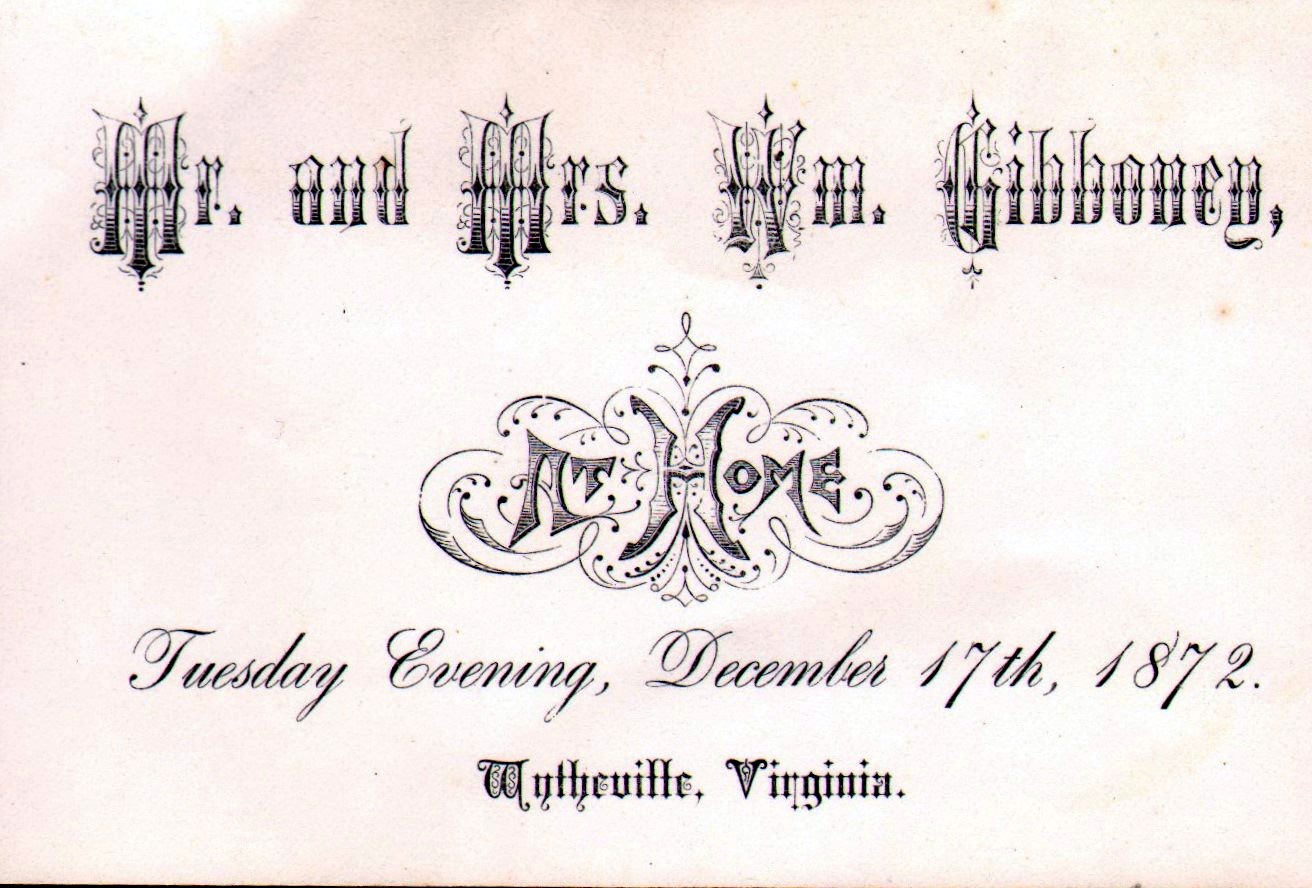 Mr. and Mrs. Wm. Gibboney,
At Home
Tuesday Evening, December 17th, 1872.
Wytheville, Virginia.